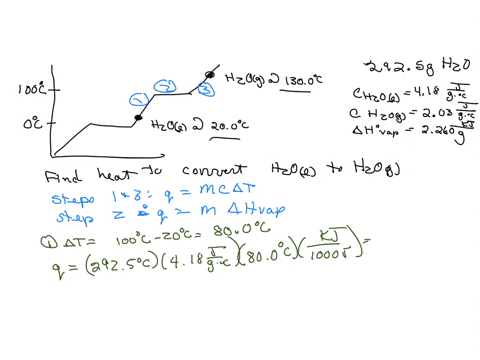 292.5g H2O
100°C ① ② ③ H2O(g) @ 130.0°C
C H2O(l) = 4.18 J/g·°C
C H2O(g) = 2.03 J/g·°C
0°C H2O(l) @ 20.0°C
ΔH°vap = 2.260 KJ/g
Find heat to convert H2O(l) to H2O(g)
steps 1+3: q = mCΔT
step 2: q = m ΔHvap
① ΔT = 100°C - 20°C = 80.0°C
q = (292.5°C)(4.18 J/g·°C)(80.0°C)(KJ/1000J) =